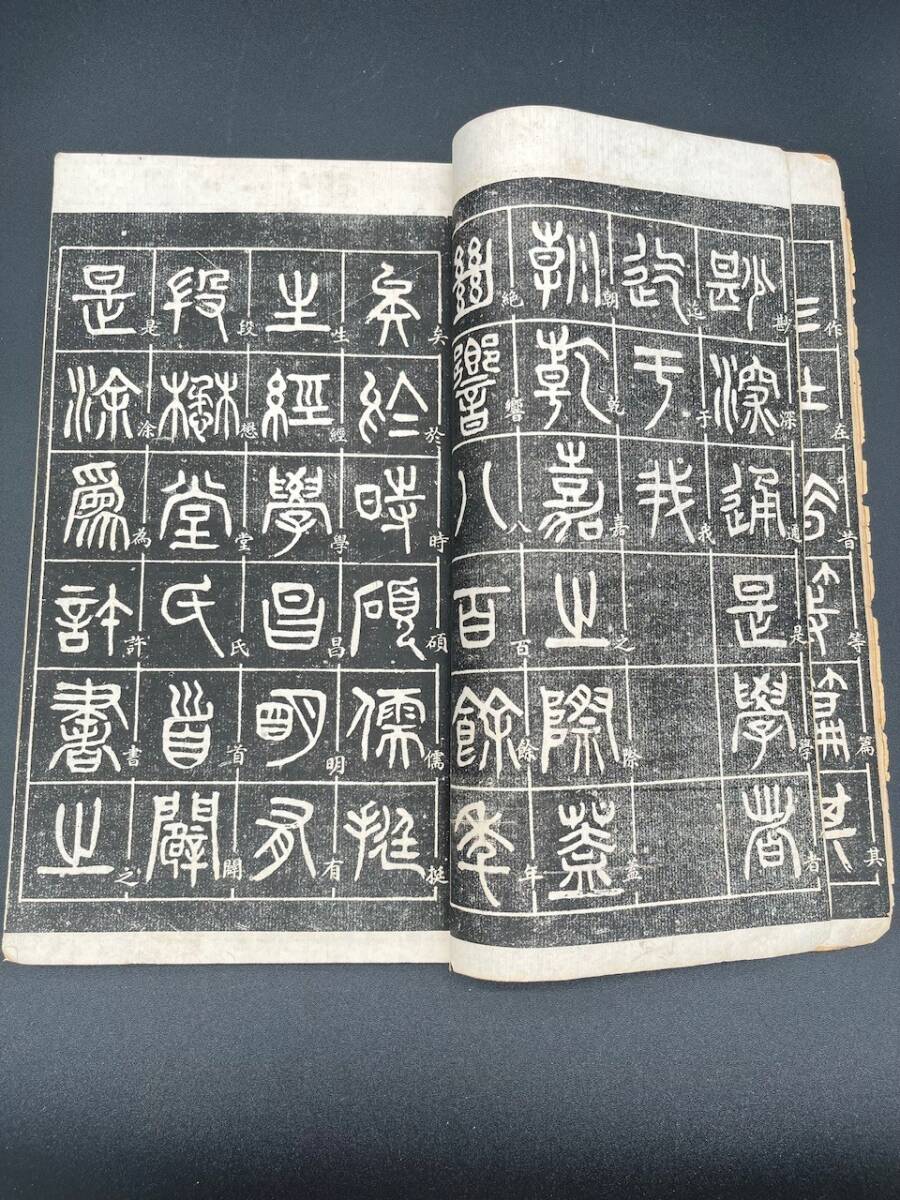 作在昔等篇其
尠深通是學者
迄于我
朝乾嘉之際蓋
絕響八百餘年
矣於時碩儒挺
生經學昌明有
段懋堂氏首闢
是涂為許書之